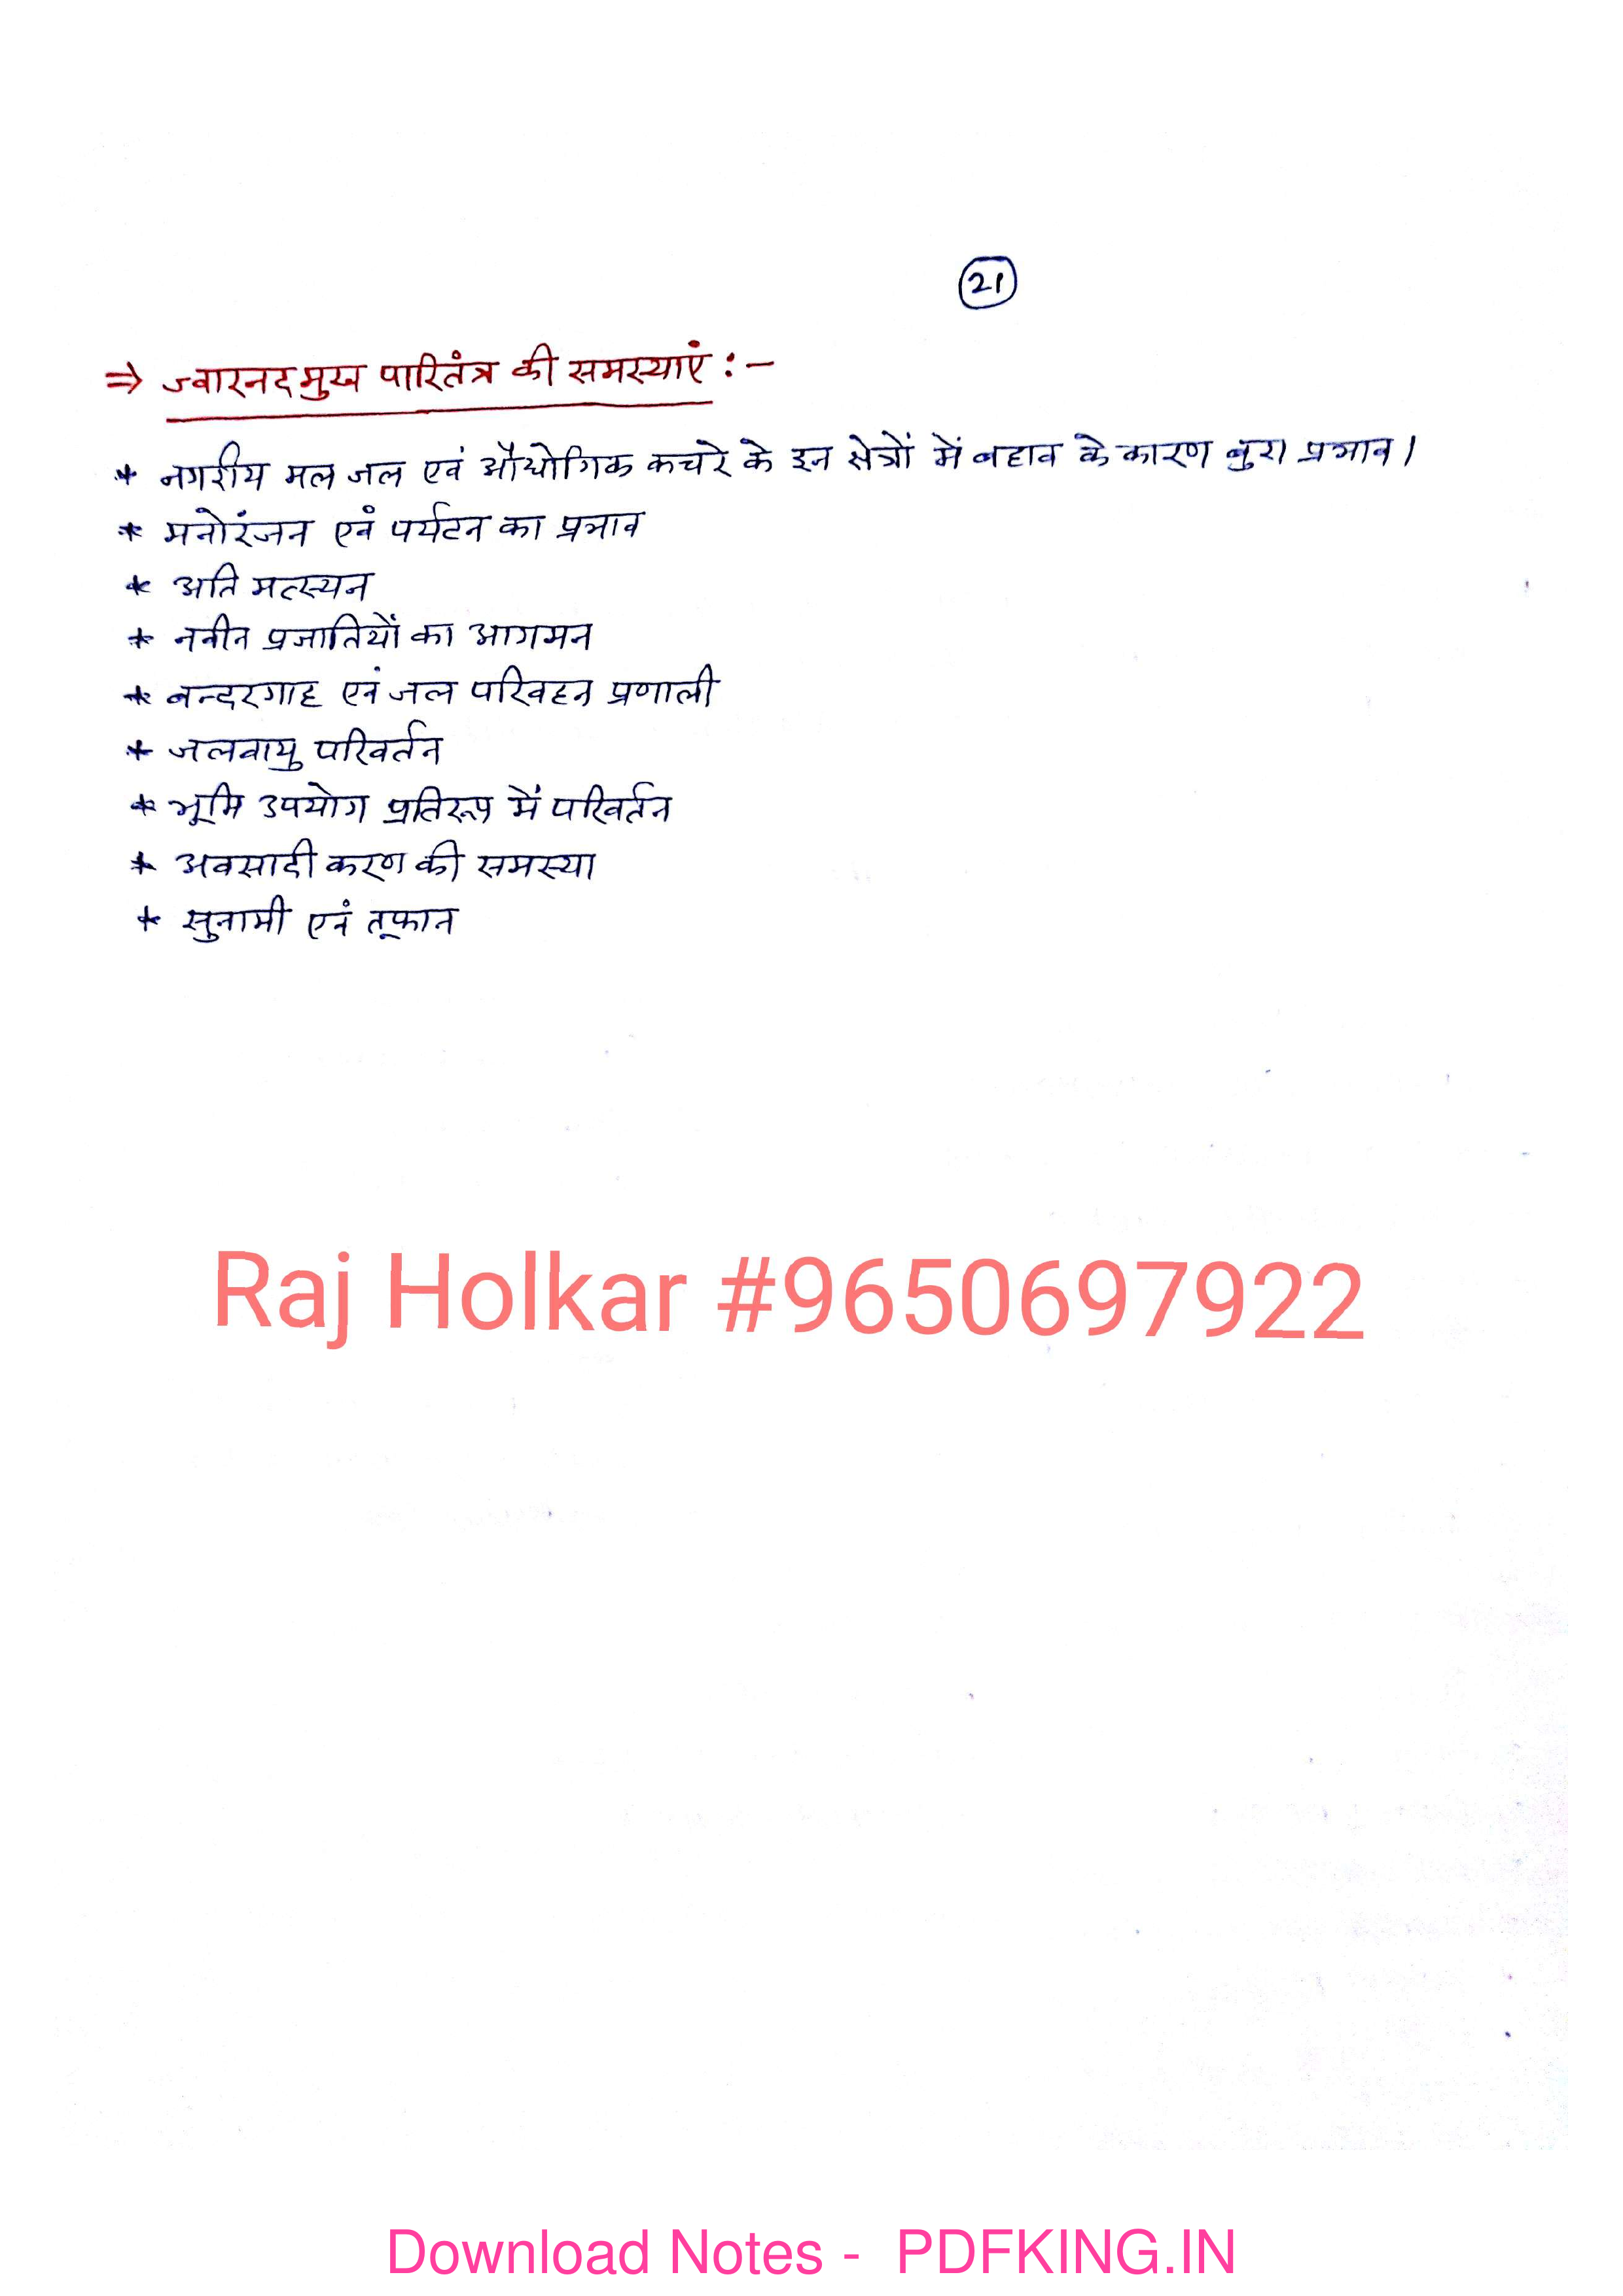 21
⇒ ज्वारनदमुख पारितंत्र की समस्याएं :-
* नगरीय मल जल एवं औद्योगिक कचरे के इन क्षेत्रों में बहाव के कारण बुरा प्रभाव।
* मनोरंजन एवं पर्यटन का प्रभाव
* अति मत्स्यन
* नवीन प्रजातियों का आगमन
* बन्दरगाह एवं जल परिवहन प्रणाली
* जलवायु परिवर्तन
* भूमि उपयोग प्रतिरूप में परिवर्तन
* अवसादीकरण की समस्या
* सुनामी एवं तूफान
Raj Holkar #9650697922
Download Notes - PDFKING.IN